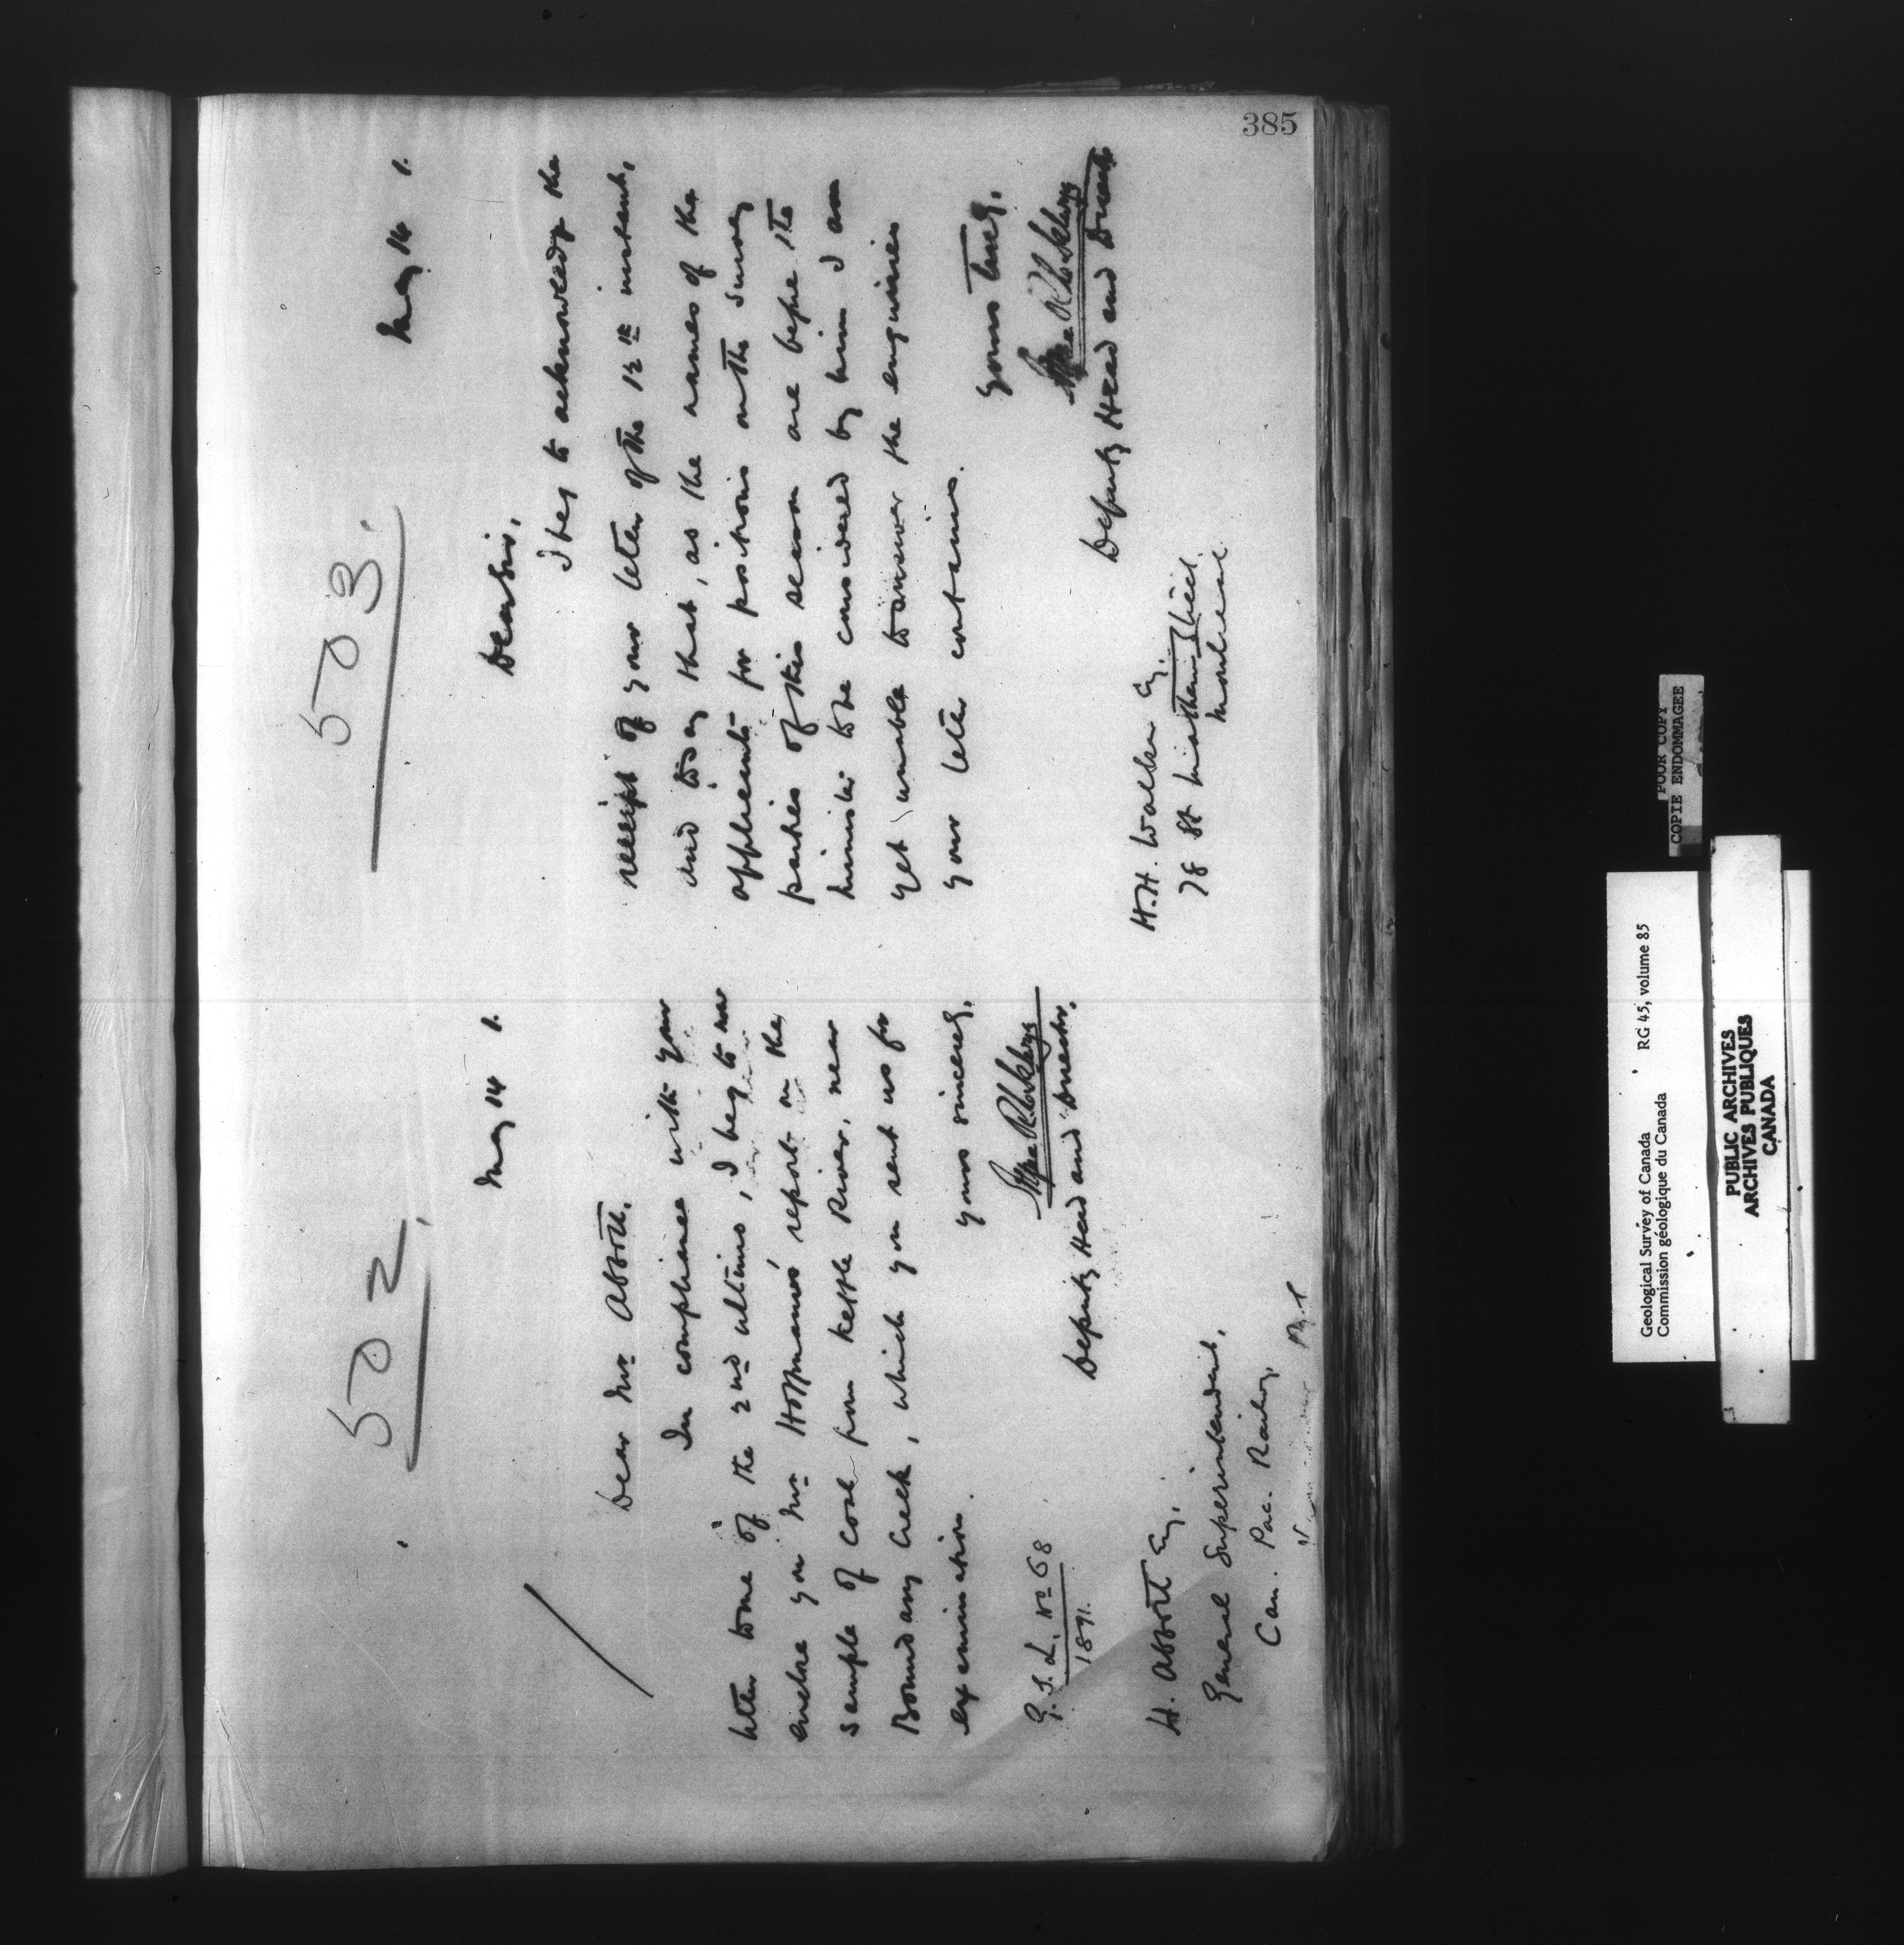 385
502
May 14 1.
Dear Mr Abbott.
In compliance with your
letter to me of the 2nd ultimo, I beg to now
enclose you Mr Hoffmann's report on the
sample of coal from Kettle River, near
Boundary Creek, which you sent us for
examination.
Yours sincerely,
Deputy Head and Director.
G.S.L. No 68
1891.
H. Abbott Esq.
General Superintendent,
Can. Pac. Railway,
503.
May 14 1.
Dear Sir,
I beg to acknowledge the
receipt of your letter of the 12th instant,
and to say that, as the names of the
applicants for positions on the Survey
parties of this season are before the
Minister to be considered by him I am
yet unable to answer the enquiries
your letter contains.
Yours truly,
Deputy Head and Director
H.H. Walker Esq.
78 St Street
Montreal
POOR COPY
COPIE ENDOMMAGEE
Geological Survey of Canada RG 45, volume 85
Commission géologique du Canada
PUBLIC ARCHIVES
ARCHIVES PUBLIQUES
CANADA